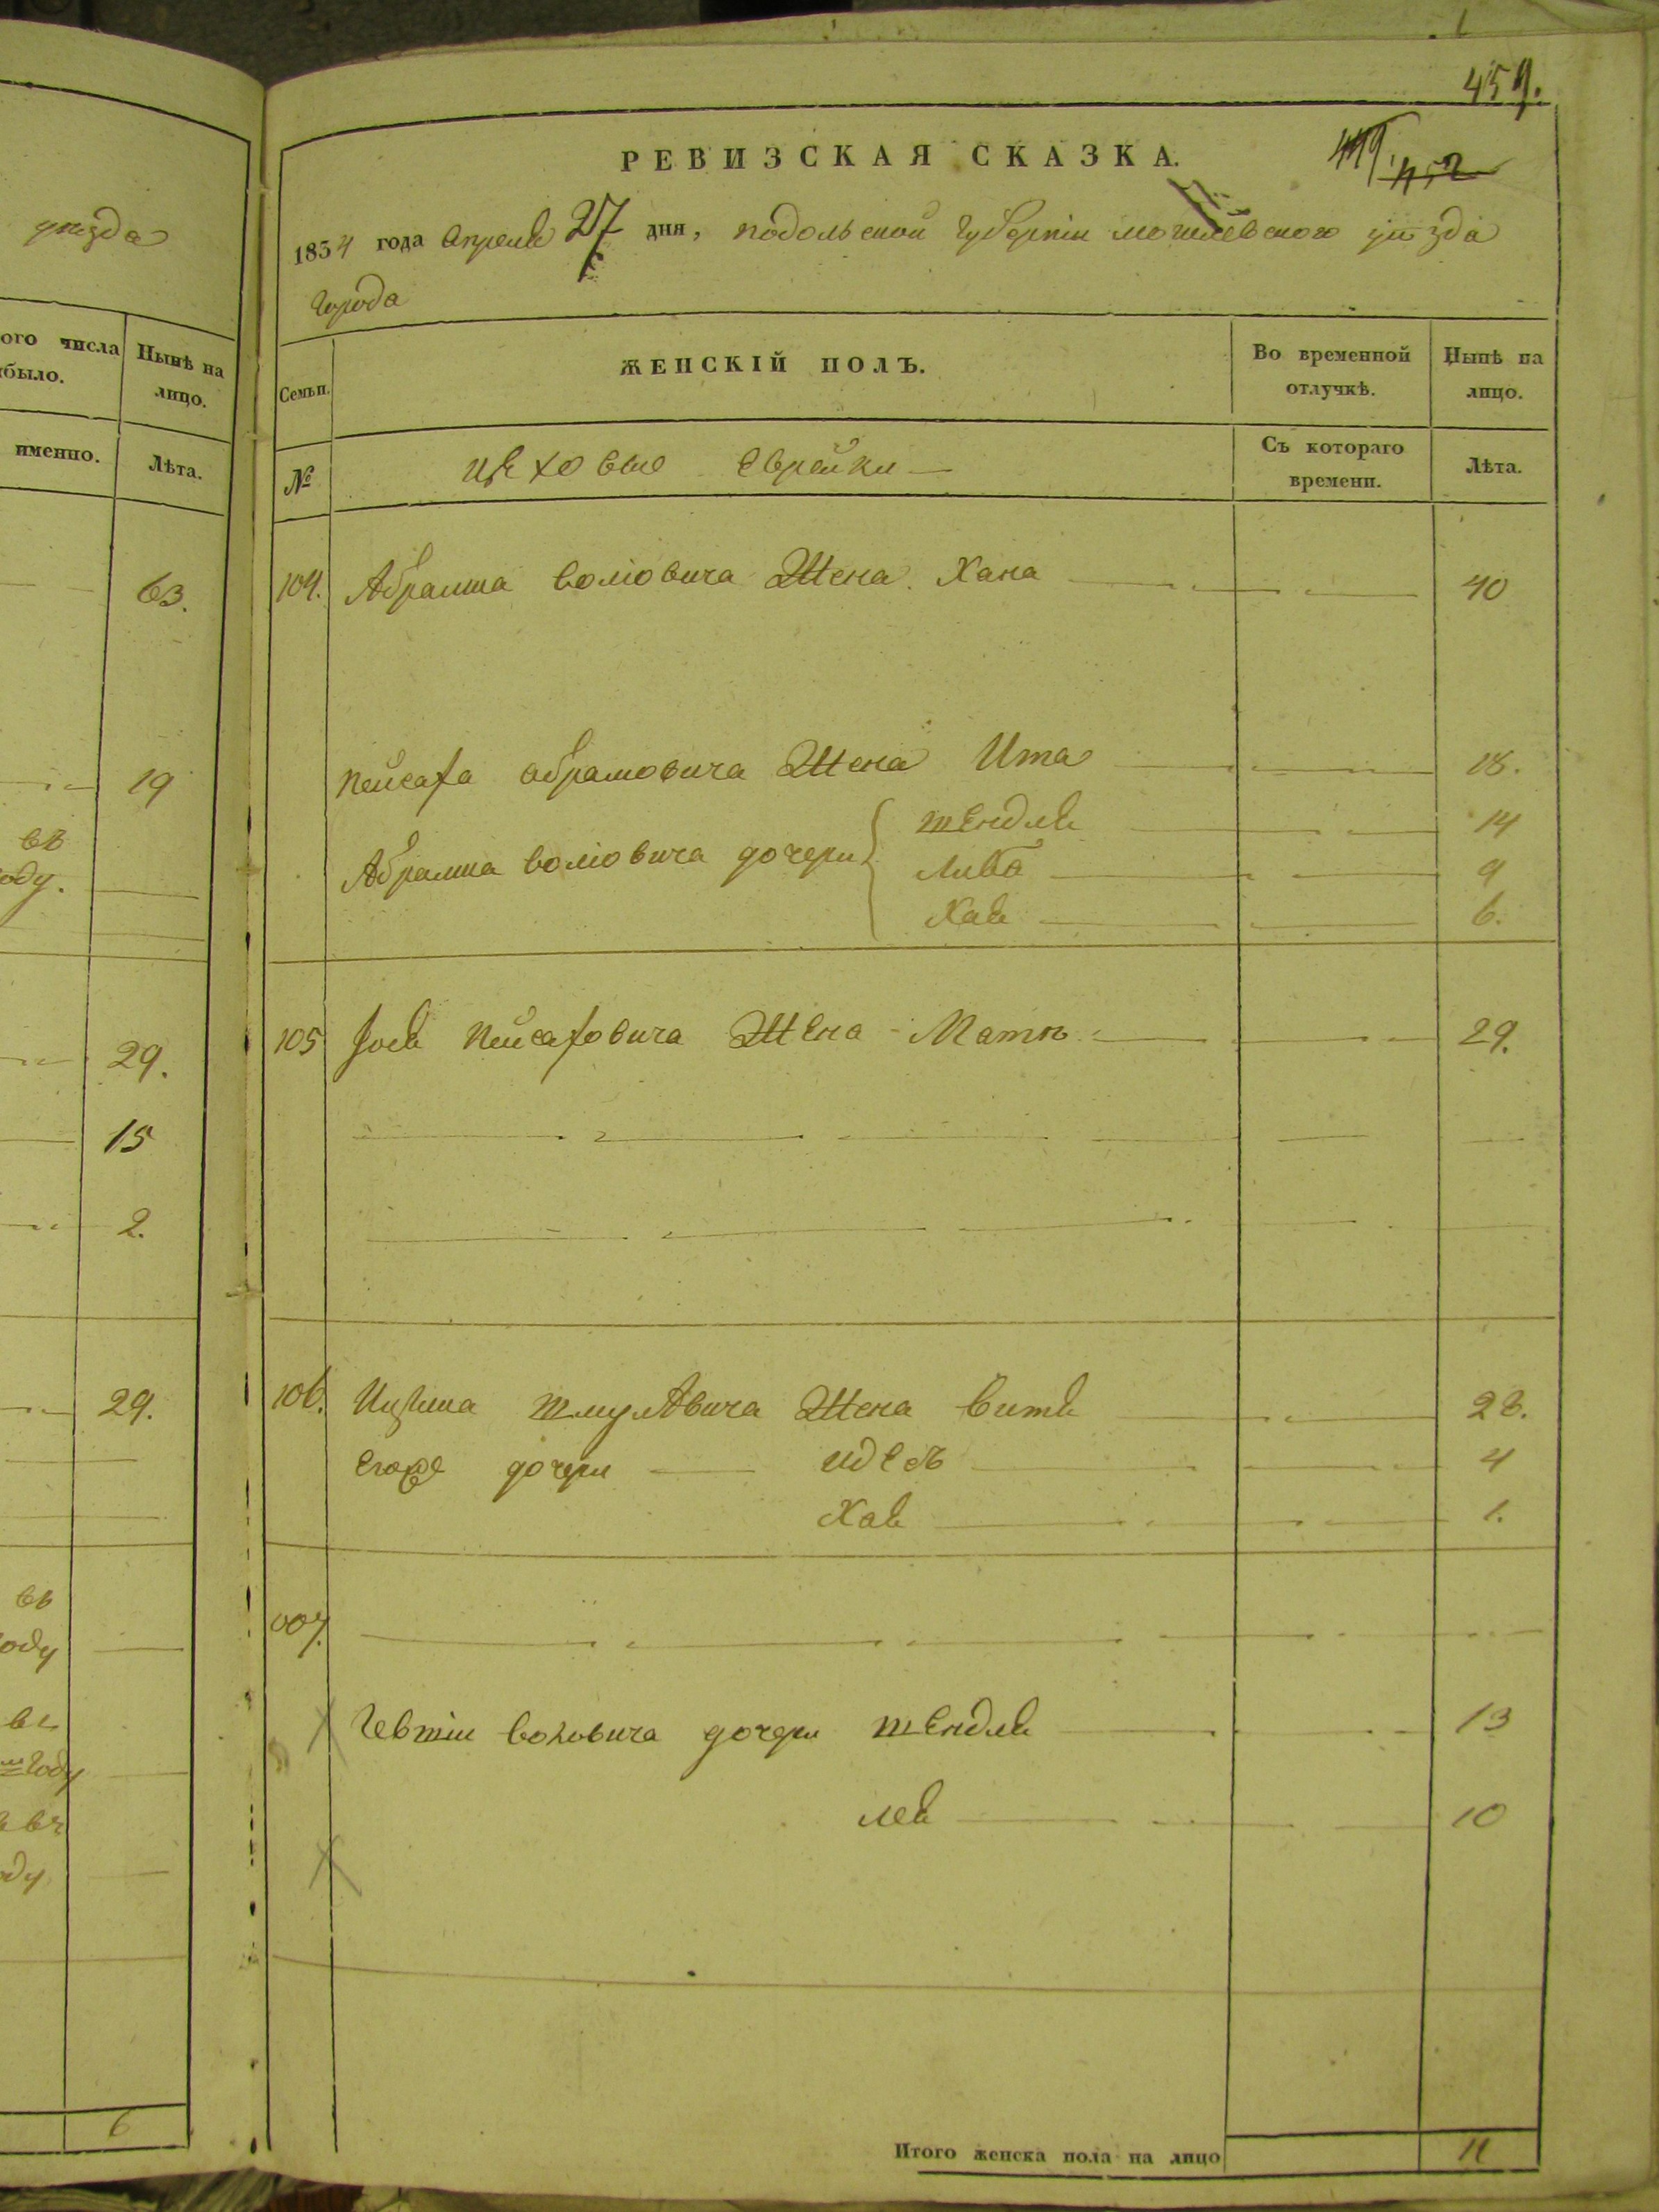 уезда
ого числа
было.
Нынѣ на
лицо.
именно.
Лѣта.
63.
19
въ
оду.
29.
15
2.
29.
въ
оду
въ
году
въ
оду
6
459.
449. 452
РЕВИЗСКАЯ СКАЗКА.
1854 года Апреля 27 дня, подольской губернии могилевского уезда
города
Семьи. ЖЕНСКІЙ ПОЛЪ. Во временной отлучкѣ. Нынѣ на лицо.
№ цеховые Еврейки — Съ котораго времени. Лѣта.
104. Абрамма Воліовича Жена Хана 40
Пейсаха Абрамовича Жена Ита 18.
Шендля 14
Абрамма Воліовича дочери Либа 9
Хая 6.
105 Пейсаховича Жена - Матя 29.
106. Шмулевича Жена Витя 28.
Егоже дочери — Идесь 4
Хая 1.
107.
Воловича дочери Шендля 13
Лея 10
Итого женска пола на лицо 11